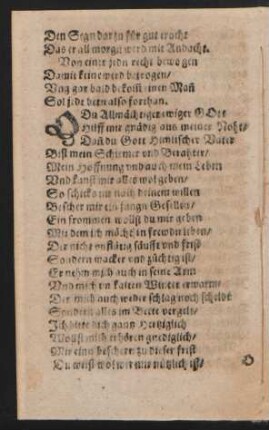 Den Segn dar zu für gut
Das er all morgn wird mit Andacht.
Von einer jedn recht bewogen
Damit keine werd betrogen/
Vnd gar bald bekom einen Mañ
Sol jede bten also forthan.
DU Allmächtiger ewiger GOtt
Hilff mir gnädig aus meiner Noht/
Dañ du Gott Himlischer Vater
Bist mein Schirmer vnd Berahter/
Mein Hoffnung vnd auch mein Leben
Vnd kanst mir alles wol geben/
So schick es nu nach deinem willen
Bescher mir ein jungn Gesellen/
Ein frommen wollst du mir geben
Mit dem ich mächt in frewdn leben/
Der nicht unflätig säufft vnd frist
Sondern wacker vnd züchtig ist/
Er nehm mich auch in seine Arm
Vnd mich im kalten Winter erwarm/
Der mich auch weder schlag noch scheldt
Sondern alles im Bette vergelt/
Ich bitte dich gantz Hertziglich
Wollst mich erhören gnediglich/
Mir einn beschern zu dieser frist
Du weist wol wie mir nützlich ist/